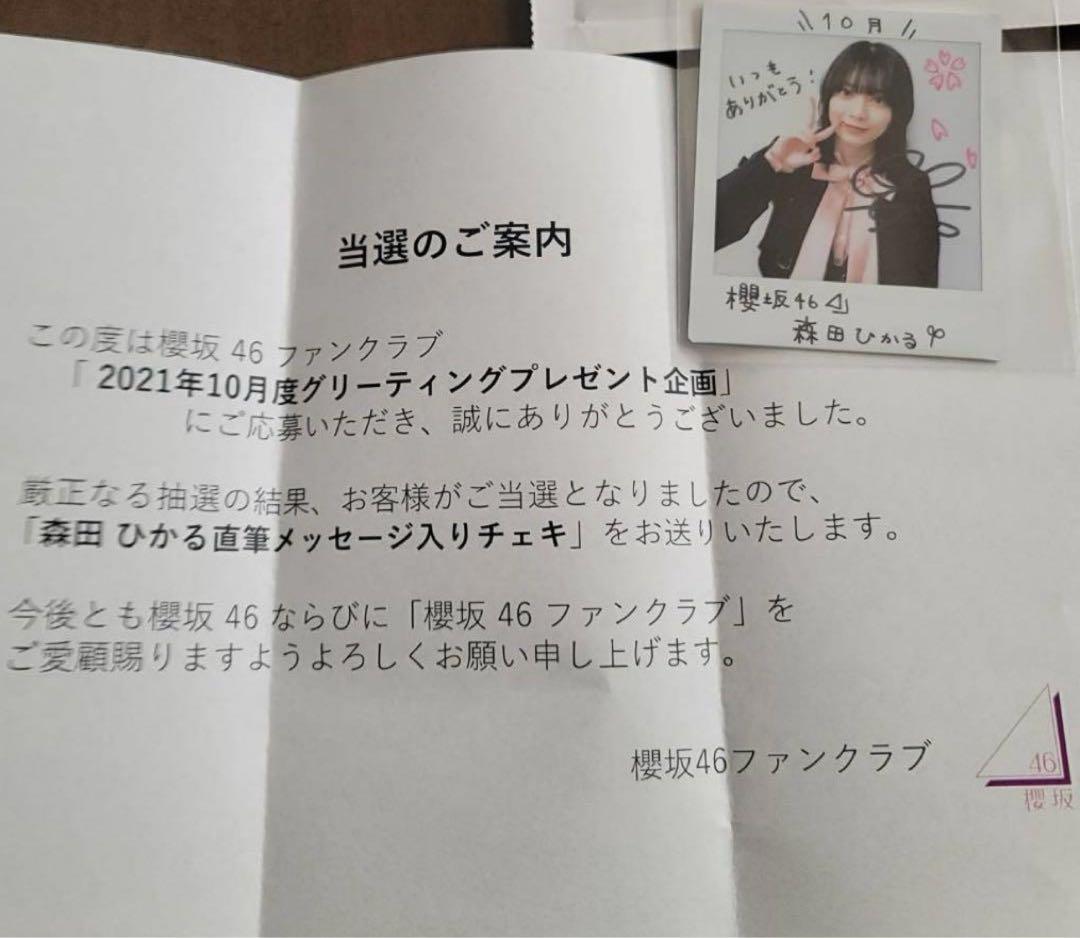 10月
いつも
ありがとう!
櫻坂46
森田ひかる
当選のご案内
この度は櫻坂 46 ファンクラブ
「 2021年10月度グリーティングプレゼント企画」
にご応募いただき、誠にありがとうございました。
厳正なる抽選の結果、お客様がご当選となりましたので、
「森田 ひかる直筆メッセージ入りチェキ」をお送りいたします。
今後とも櫻坂 46 ならびに「櫻坂 46 ファンクラブ」を
ご愛顧賜りますようよろしくお願い申し上げます。
櫻坂46ファンクラブ
46
櫻坂